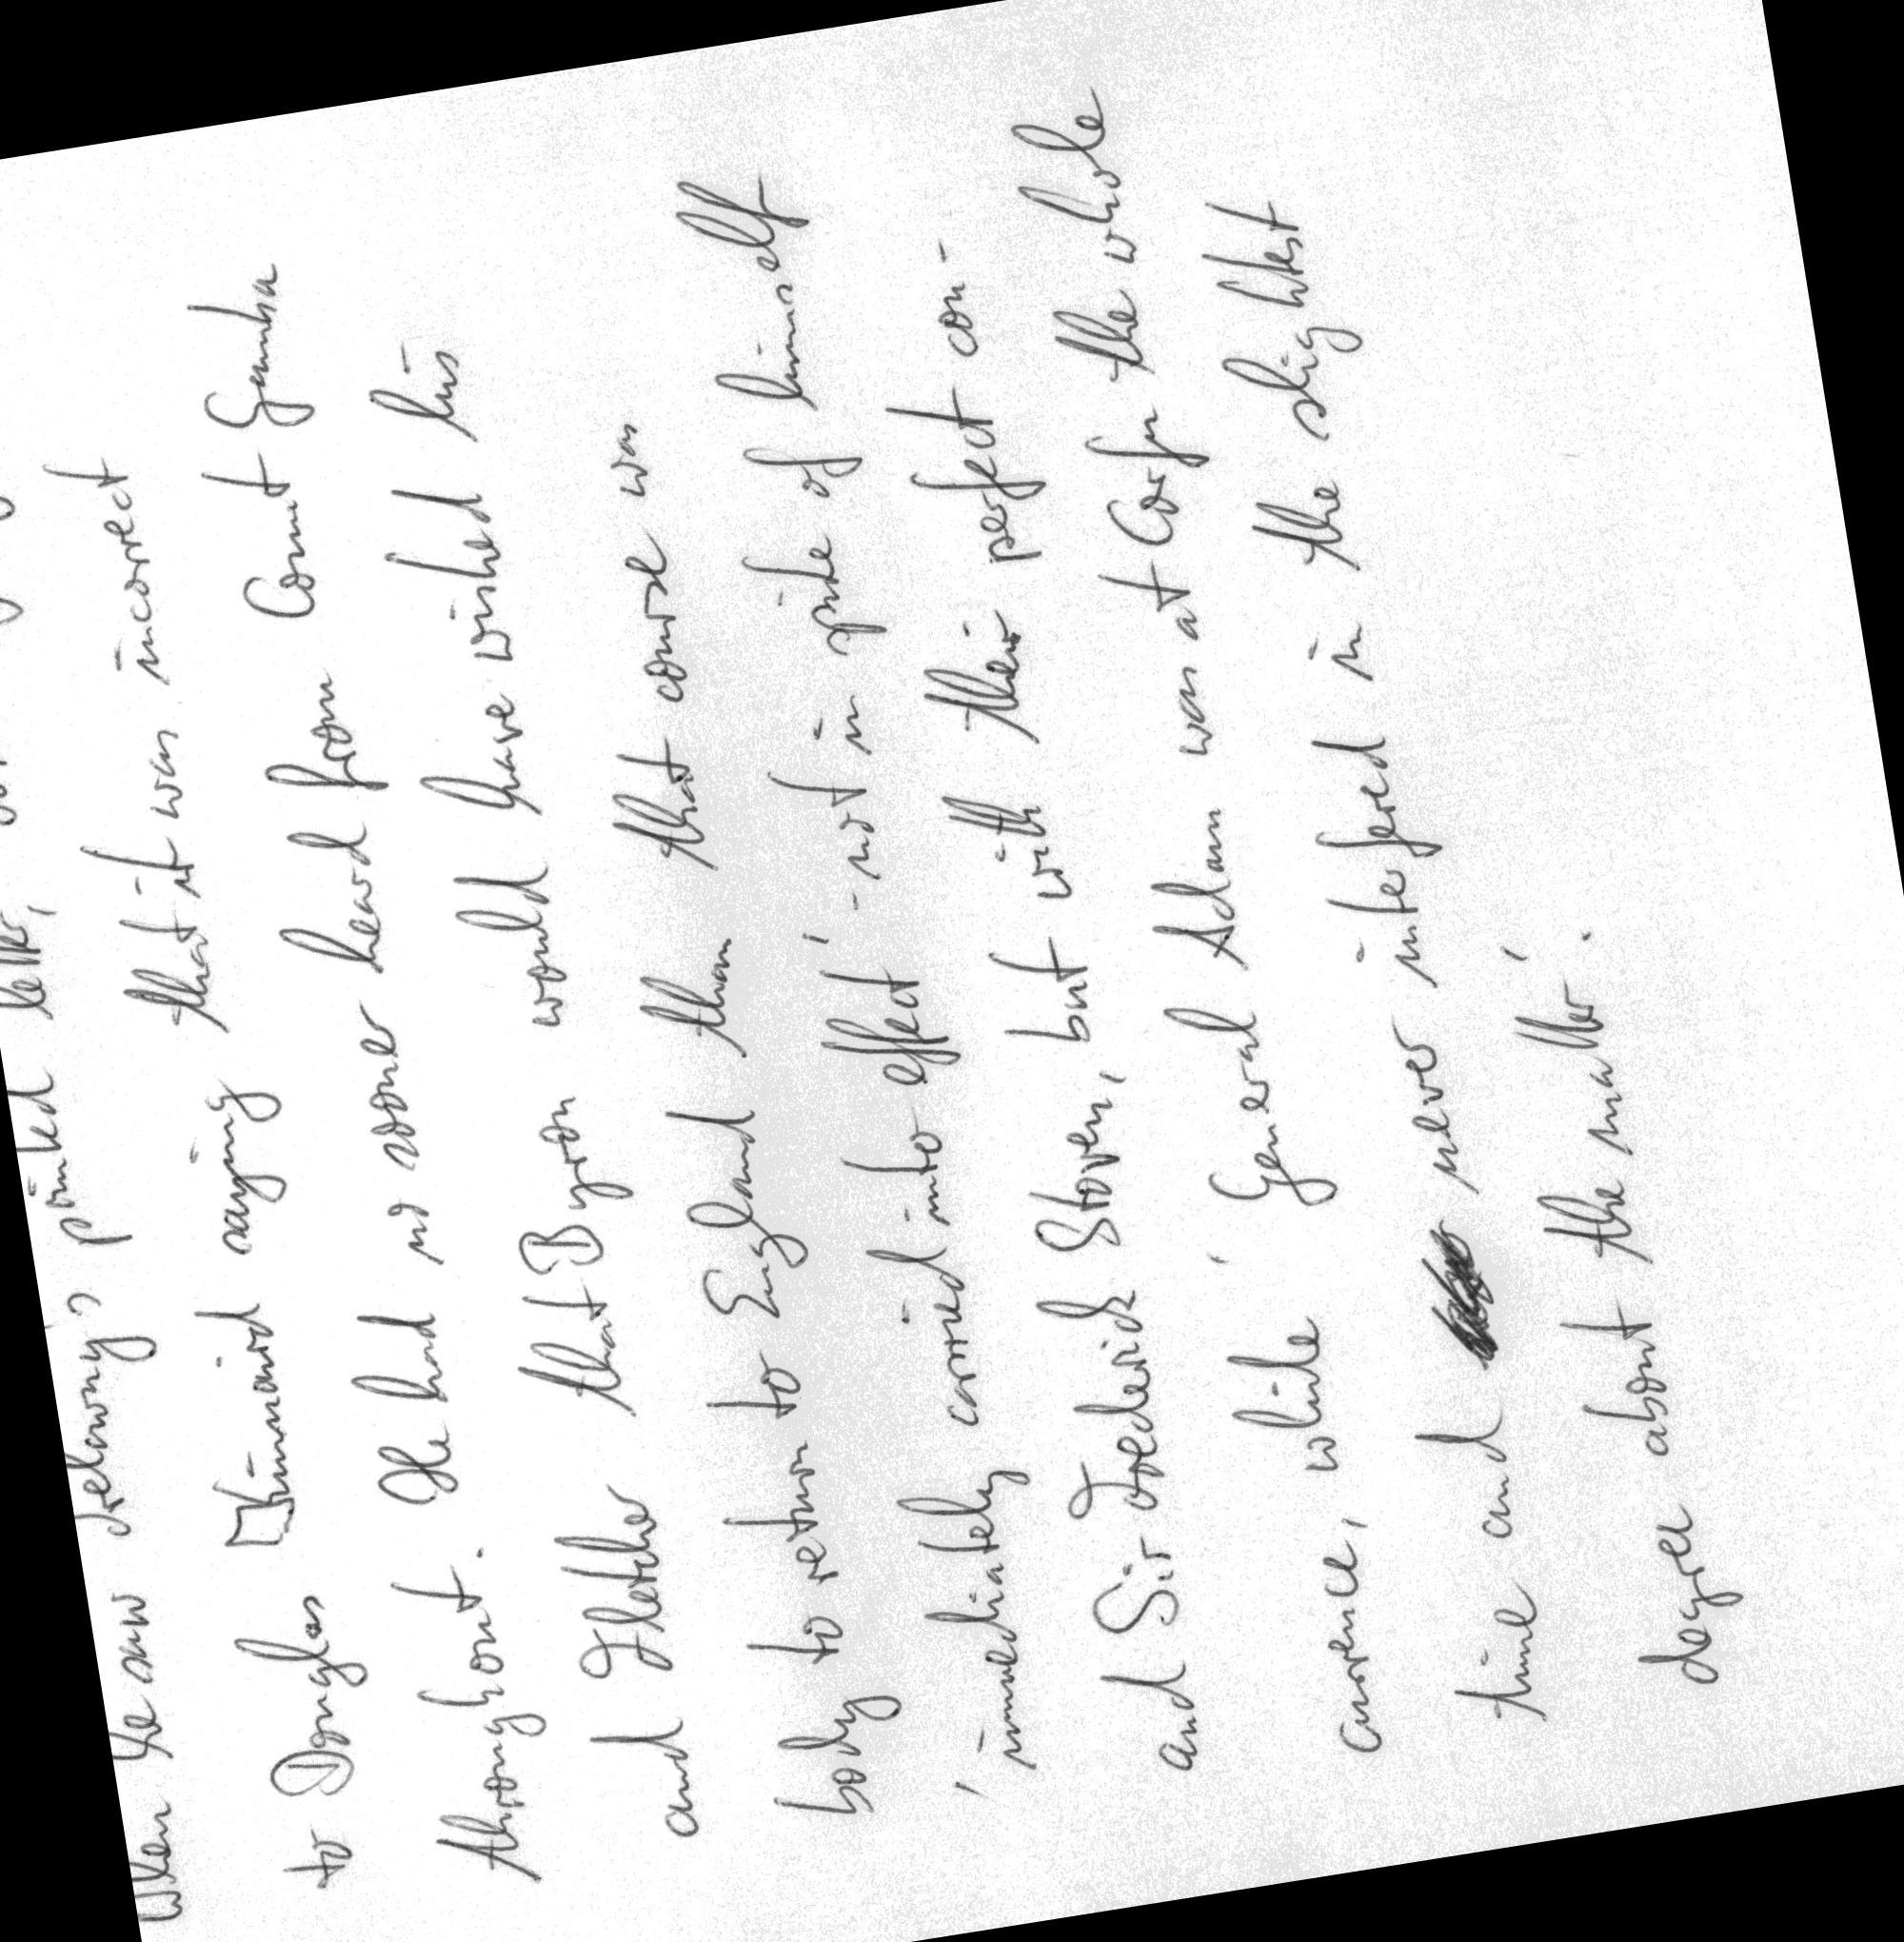 When he saw Trelawny's printed letter,
to Douglas Kinnaird saying that it was incorrect
throughout. He had no sooner heard from Count Gamba
and Fletcher that Byron would have wished his
body to return to England than that course was
'immediately carried into effect' - not in spite of himself
and Sir Frederick Stoven, but with their perfect con-
currence, while 'General Adam was at Corfu the whole
time and never interfered in the slightest
degree about the matter.'